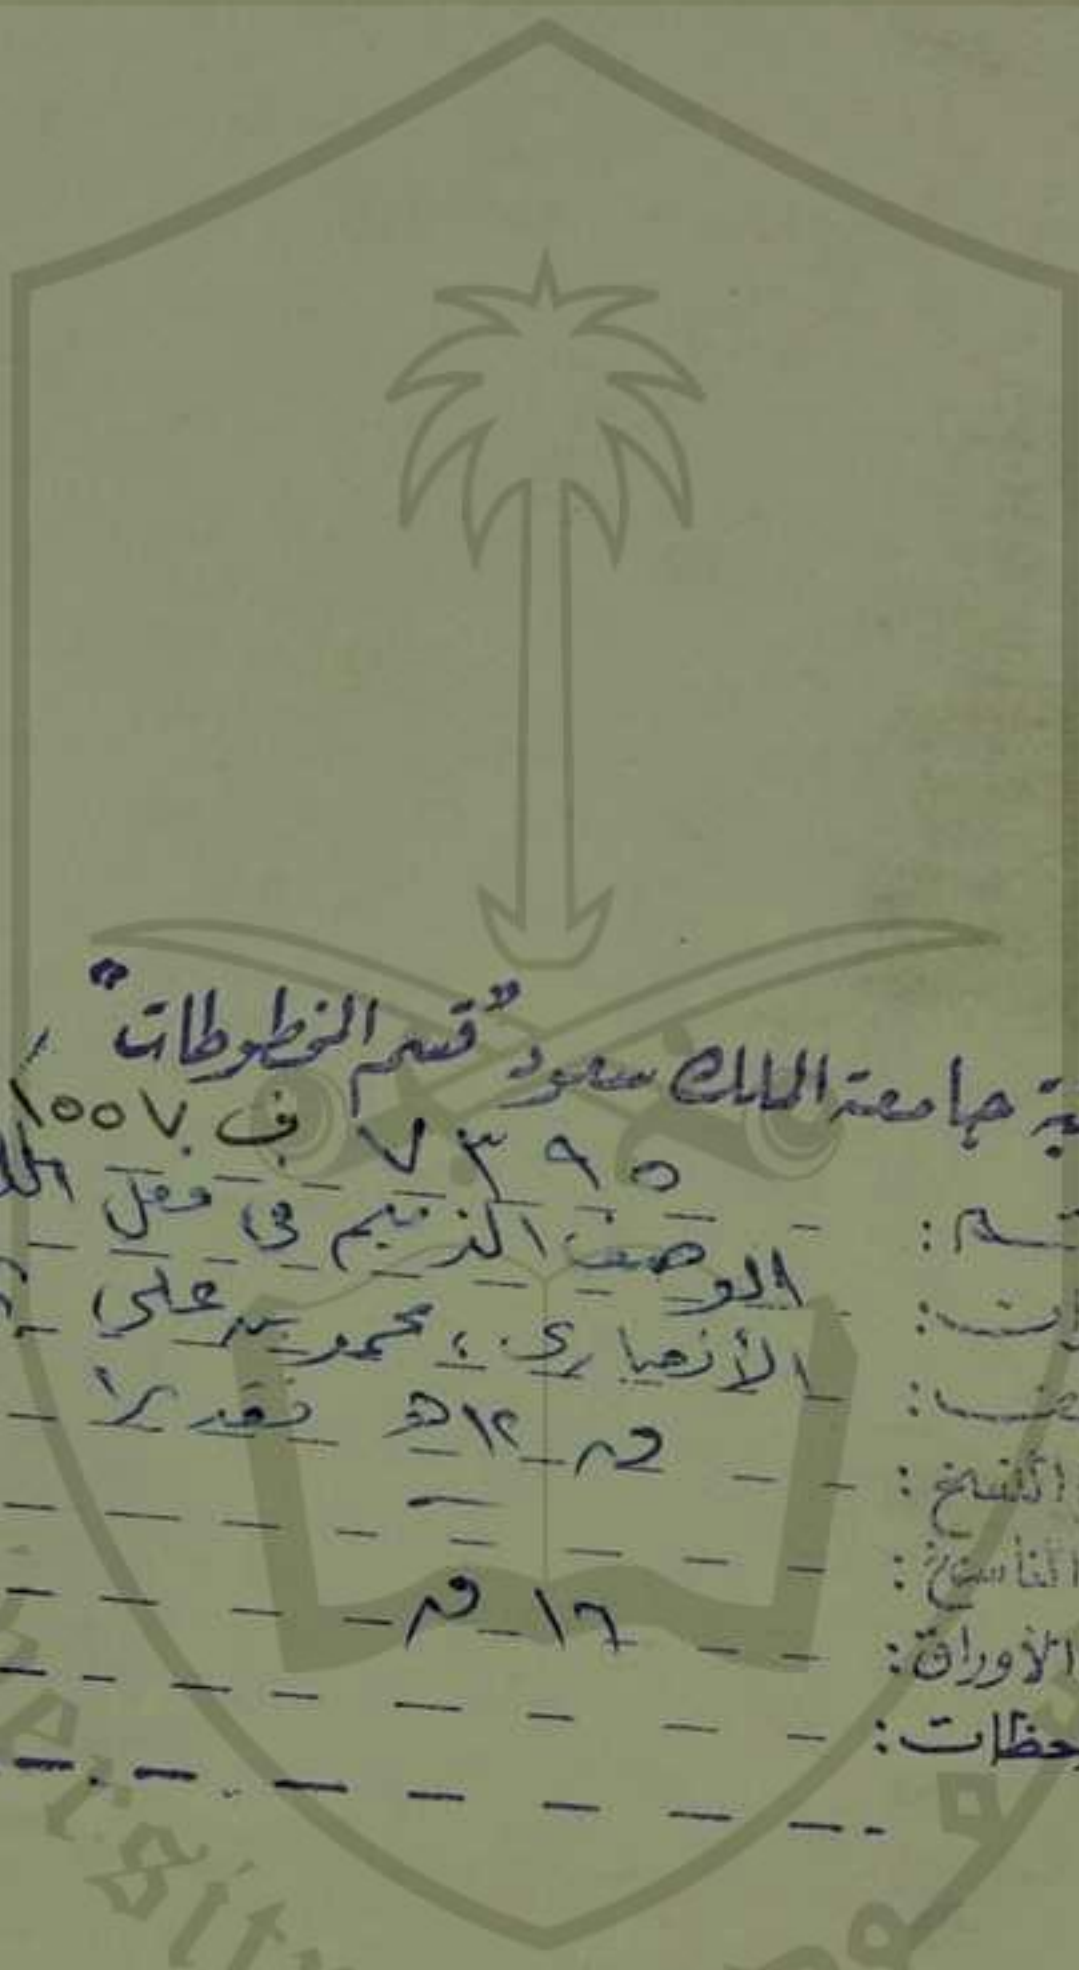 جامعة الملك سعود "قسم المخطوطات"
٧٣٩٥ ف ١٥٥٧
الوصف الذميم في فعل
الأنصاري، محمود بن علي
النسخ: ق ١٢هـ تقديرا
الناسخ: —
الأوراق: ١٦ ق